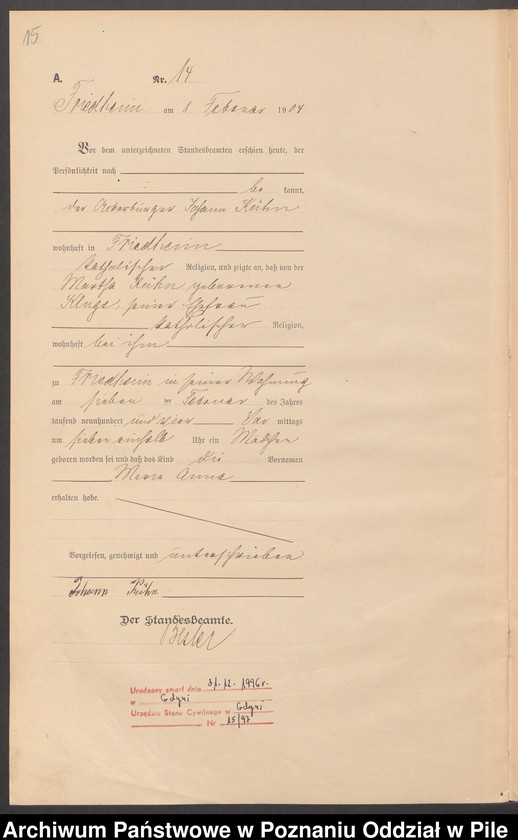 15
A. Nr. 14
Friedheim am 8 Februar 1904
Vor dem unterzeichneten Standesbeamten erschien heute, der
Persönlichkeit nach
be kannt,
der Ackerbürger Johann Kühn
wohnhaft in Friedheim
katholischer Religion, und zeigte an, daß von der
Martha Kühn geborenen
Kluge, seiner Ehefrau
katholischer Religion,
wohnhaft bei ihm
zu Friedheim in seiner Wohnung
am sieben ten Februar des Jahres
tausend neunhundert und vier Vor mittags
um sieben einhalb Uhr ein Mädchen
geboren worden sei und daß das Kind die Vornamen
Maria Anna
erhalten habe.
Vorgelesen, genehmigt und unterschrieben
Johann Kühn
Der Standesbeamte.
Urodzony zmarł dnia 31.12.1996r.
w Gdyni
Urzędzie Stanu Cywilnego w Gdyni
Nr 15/97
Archiwum Państwowe w Poznaniu Oddział w Pile